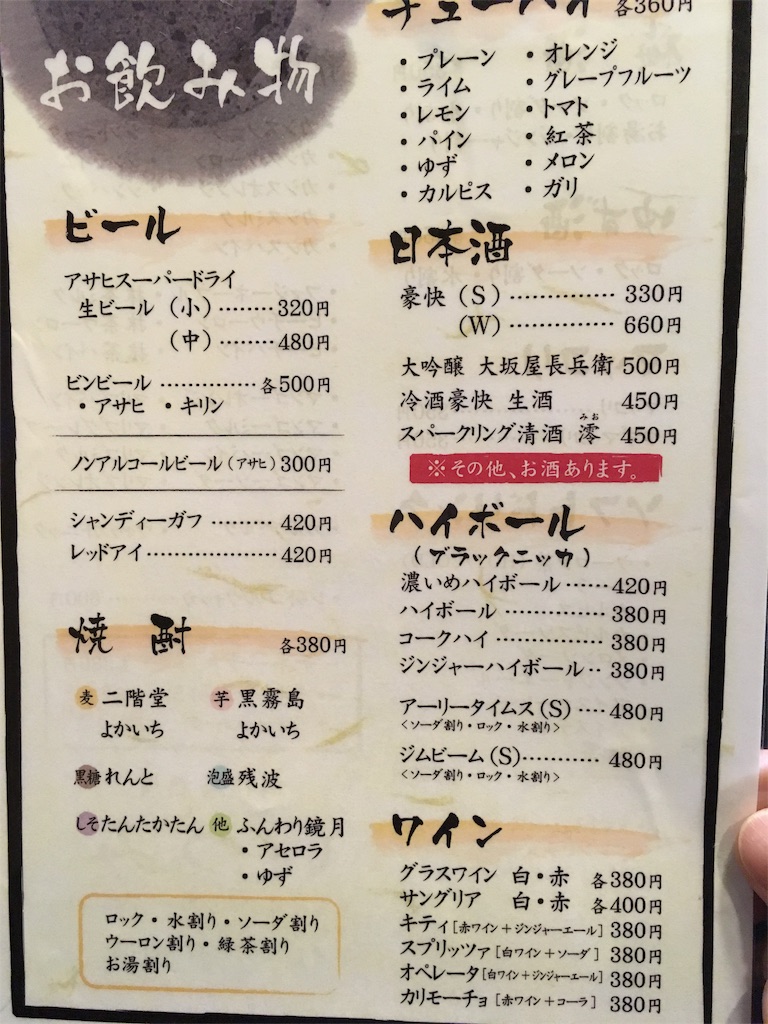 お飲み物
ビール
アサヒスーパードライ
生ビール（小）‥‥‥‥320円
（中）‥‥‥‥480円
ビンビール ‥‥‥‥‥‥ 各500円
・アサヒ ・キリン
ノンアルコールビール（アサヒ）300円
シャンディーガフ ‥‥‥‥ 420円
レッドアイ‥‥‥‥‥‥ 420円
焼酎 各380円
麦 二階堂 芋 黒霧島
よかいち よかいち
黒糖 れんと 泡盛 残波
しそ たんたかたん 他 ふんわり鏡月
・アセロラ
・ゆず
ロック・水割り・ソーダ割り
ウーロン割り・緑茶割り
お湯割り
チューハイ 各360円
・プレーン ・オレンジ
・ライム ・グレープフルーツ
・レモン ・トマト
・パイン ・紅茶
・ゆず ・メロン
・カルピス ・ガリ
日本酒
豪快（S）‥‥‥‥‥‥ 330円
（W）‥‥‥‥‥‥ 660円
大吟醸 大坂屋長兵衛 500円
冷酒豪快 生酒 450円
スパークリング清酒 澪 みお 450円
※その他、お酒あります。
ハイボール
（ブラックニッカ）
濃いめハイボール‥‥‥420円
ハイボール‥‥‥‥‥‥380円
コークハイ‥‥‥‥‥‥380円
ジンジャーハイボール‥380円
アーリータイムス（S）‥‥480円
〈ソーダ割り・ロック・水割り〉
ジムビーム（S）‥‥‥‥‥480円
〈ソーダ割り・ロック・水割り〉
ワイン
グラスワイン 白・赤 各380円
サングリア 白・赤 各400円
キティ［赤ワイン＋ジンジャーエール］380円
スプリッツァ［白ワイン＋ソーダ］380円
オペレータ［白ワイン＋ジンジャーエール］380円
カリモーチョ［赤ワイン＋コーラ］380円